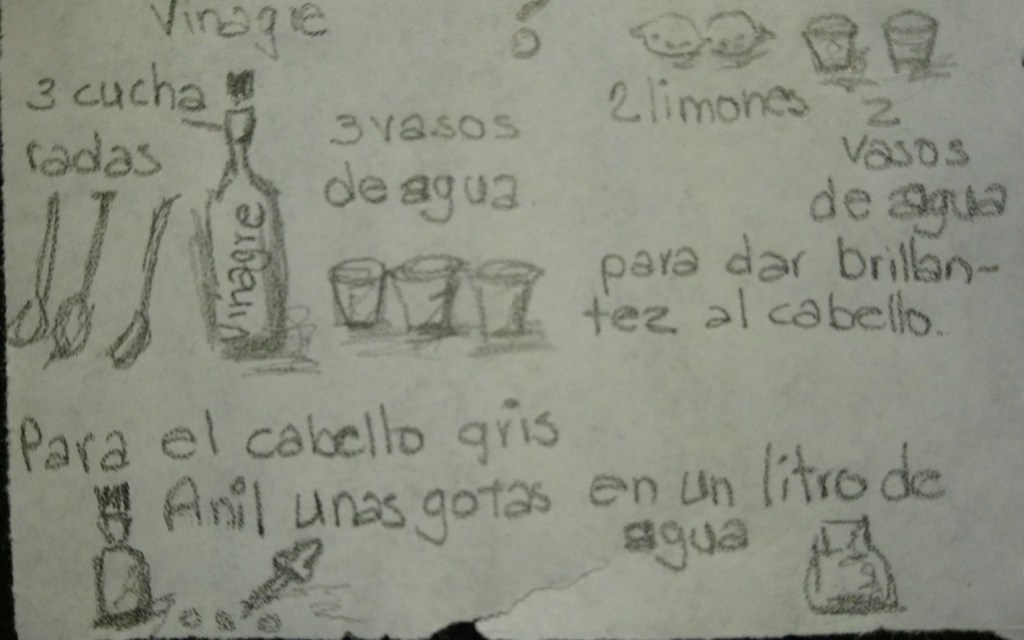 Vinagre
ó
3 cucha
radas
vinagre
3 vasos
de agua
2 limones
2
vasos
de agua
para dar brillan-
tez al cabello.
Para el cabello gris
Anil unas gotas en un litro de
agua